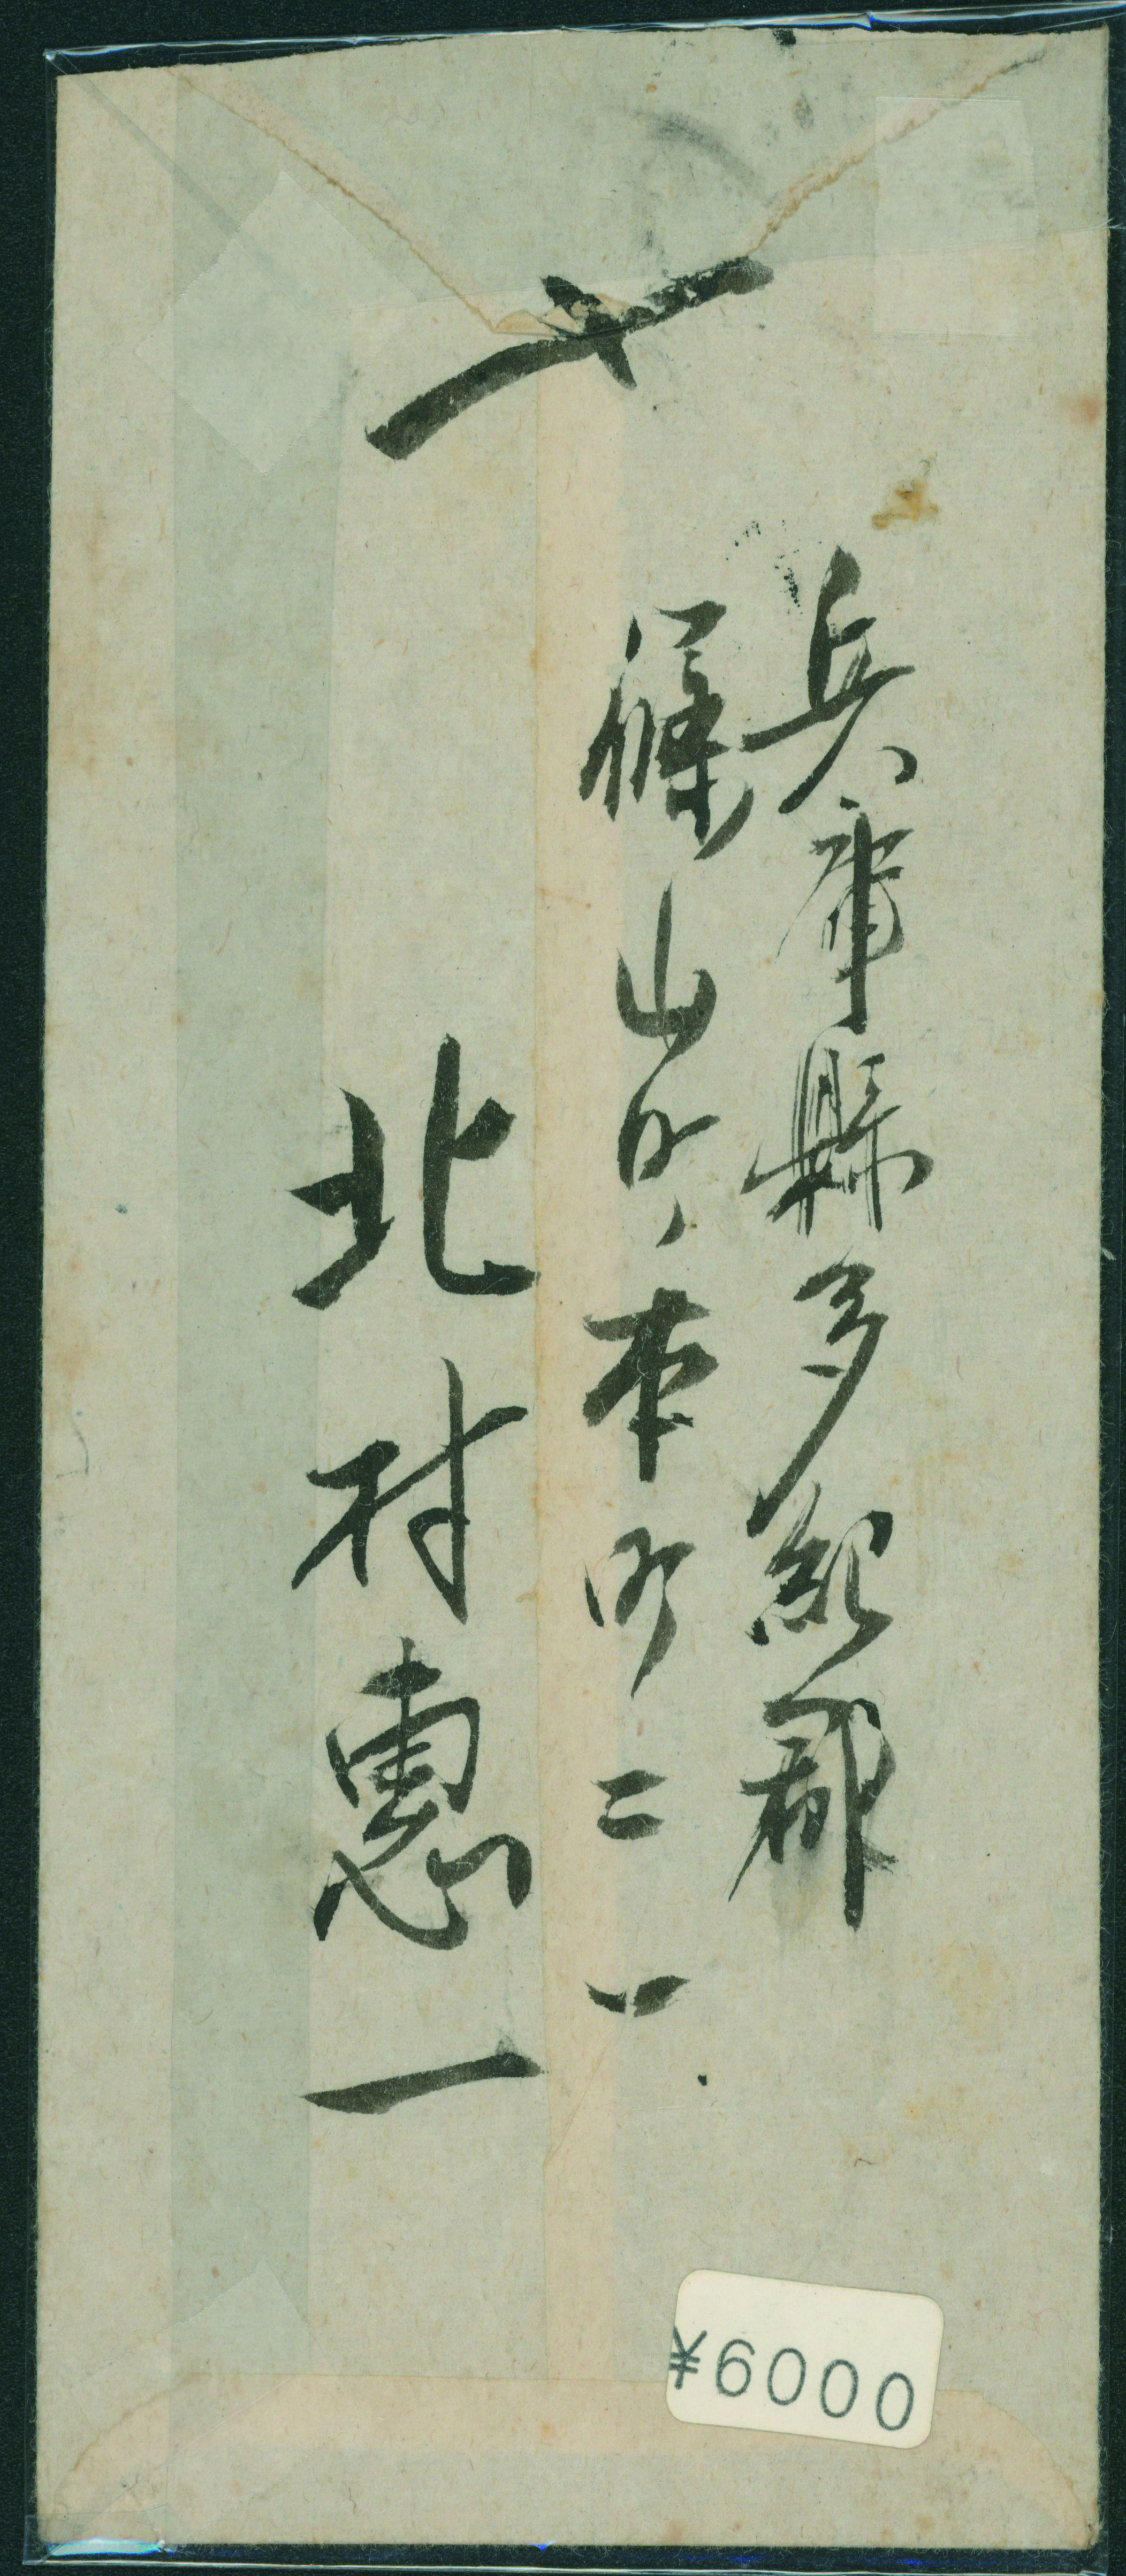 〆
兵庫縣多紀郡
篠山町本町二一
北村惠一
¥6000